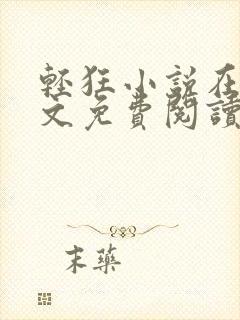 輕狂小說在
文免費閱讀
末藥